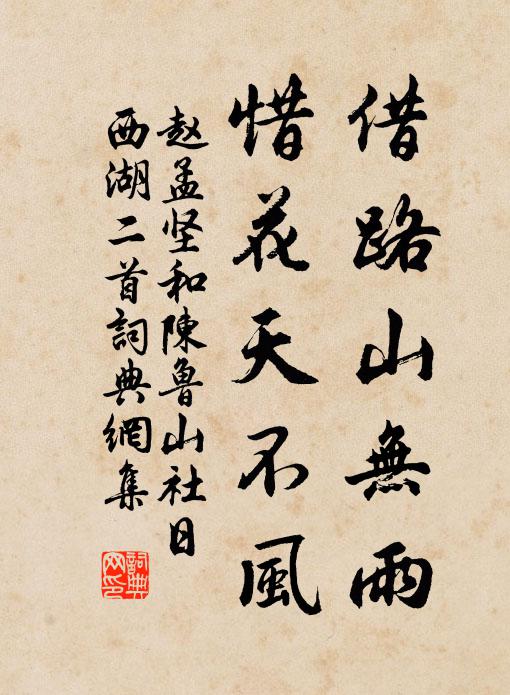 借路山無雨
惜花天不風
赵孟坚和陳魯山社日
西湖二首詞典網集
詞典
网印